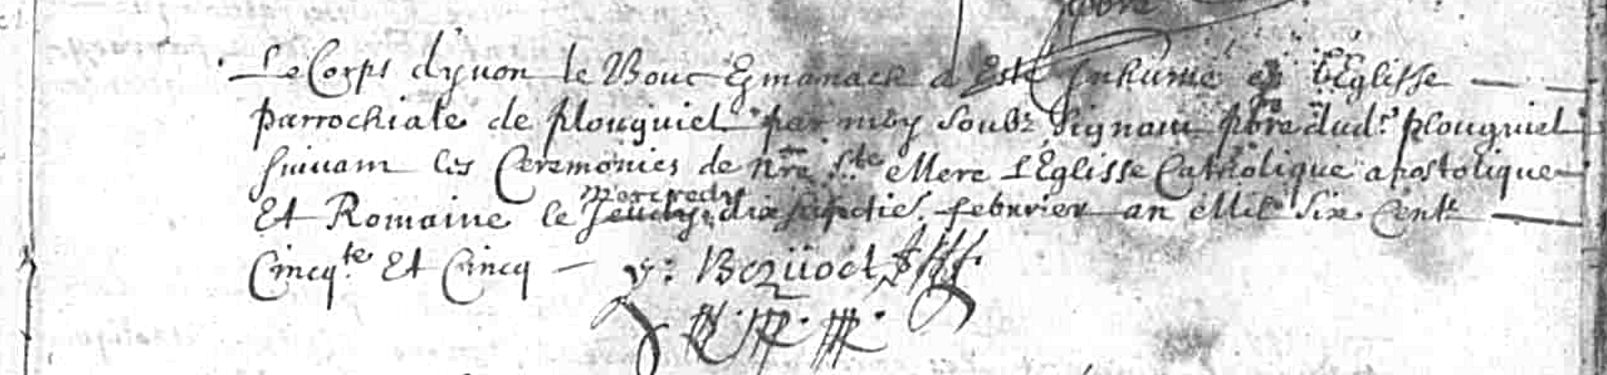 Le Corps dyuon le Bouc Kmanach a Esté Inhumé en l'Eglisse
parrochiale de plouguiel par moy soubz signant pbre dud.t plouguiel
suiuant les Ceremonies de nre Ste Mere L'Eglisse Catholique apostolique
mercredy
Et Romaine le Jeudy dix septies. febvrier an Mil Six Centz
Cincqte Et Cincq — y: